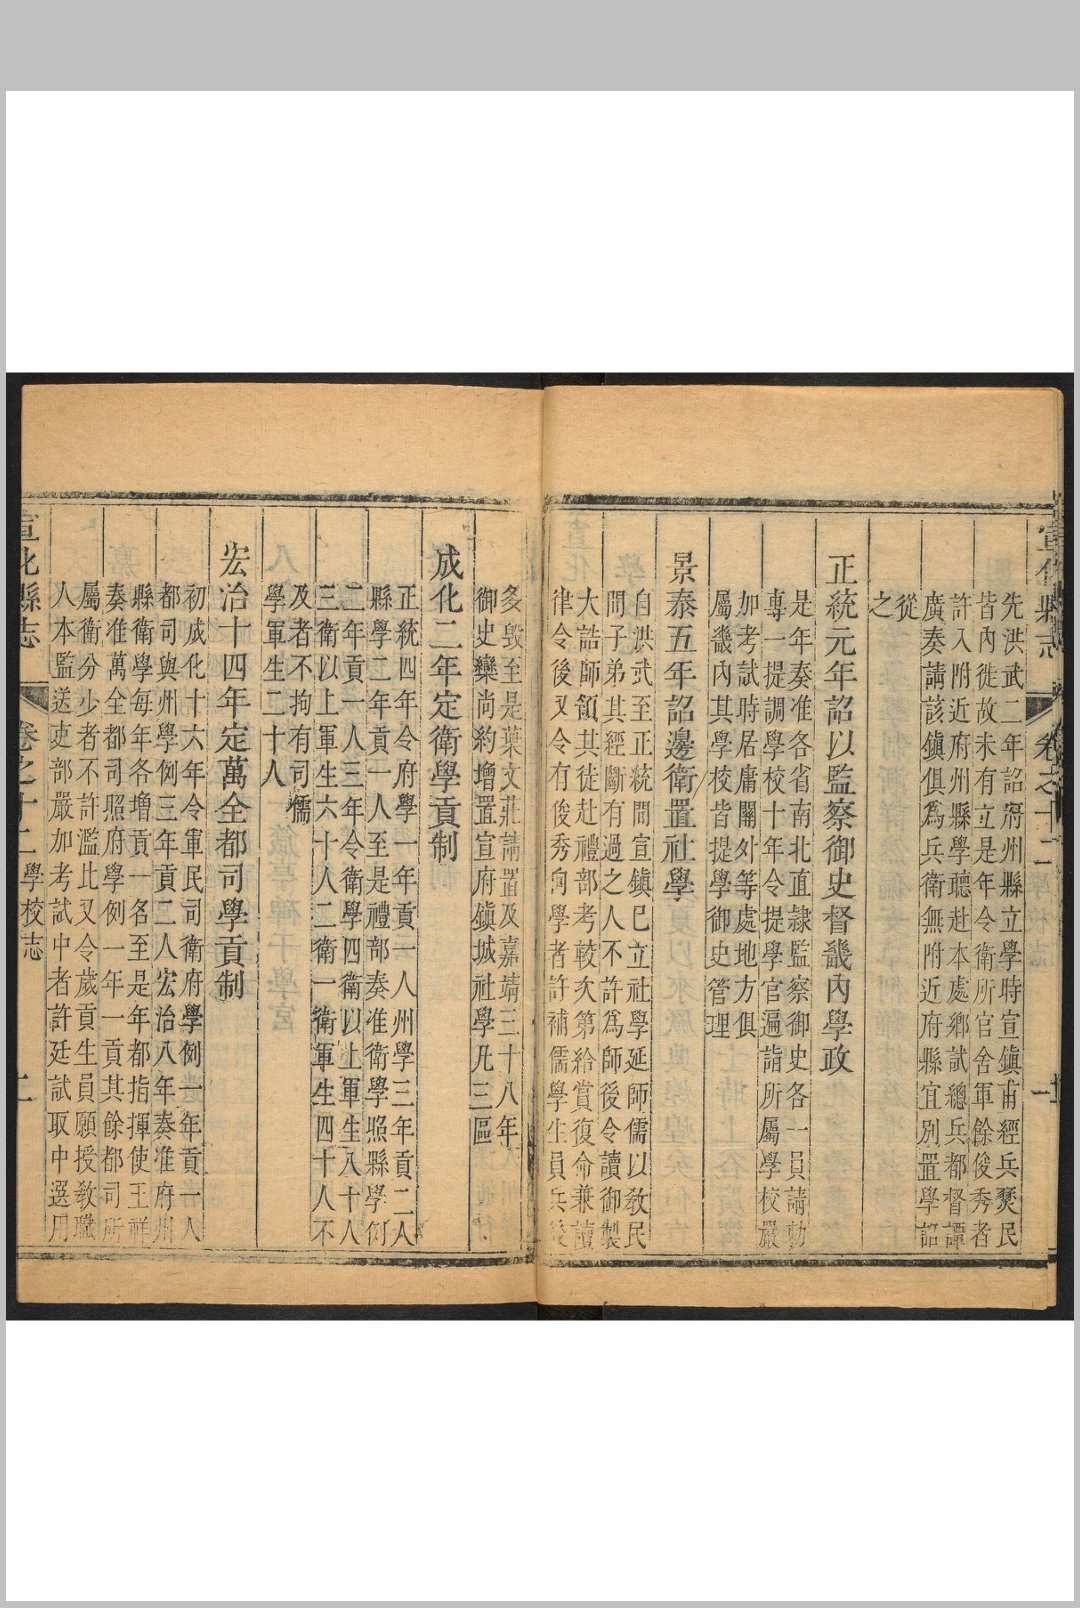 宣化縣志
卷之十二
先洪武二年詔府州縣立學時宣鎮甫經兵燹民
皆內徙故未有立是年令衛所官舍軍餘俊秀者
許入附近府州縣學聽赴本處鄉試總兵都督譚
廣奏請該鎮俱爲兵衛無附近府縣宜別置學詔
從
之
正統元年詔以監察御史督畿內學政
是年奏准各省南北直隸監察御史各一員請勅
專一提調學校十年令提學官遍詣所屬學校嚴
如考試時居庸關外等處地方俱
屬畿內其學校皆提學御史管理
景泰五年詔邊衛置社學
自洪武至正統間宣鎮已立社學延師儒以敎民
間子弟其經斷有過之人不許爲師後令讀御製
大誥師領其徒赴禮部考較次第給賞復命兼讀
律令後又令有俊秀向學者許補儒學生員兵後
多毀至是葉文莊請置及嘉靖三十八年
御史欒尚約增置宣府鎮城社學凡三區
成化二年定衛學貢制
正統四年令府學一年貢一人州學三年貢二人
縣學二年貢一人至是禮部奏准衛學照縣學例
二年貢一人三年令衛學四衛以上軍生八十人
三衛以上軍生六十人二衛一衛軍生四十人不
及者不拘有司儒
學軍生二十人
宏治十四年定萬全都司學貢制
初成化十六年令軍民司衛府學例一年貢一人
都司與州學例三年貢二人宏治八年奏准府州
縣衛學每年各增貢一名至是年都指揮使王祥
奏准萬全都司照府學例一年一貢其餘都司所
屬衛分少者不許濫比又令歲貢生員願授敎職
人本監送吏部嚴加考試中者許廷試取中選用
宣化縣志
卷之十二
學校志
二